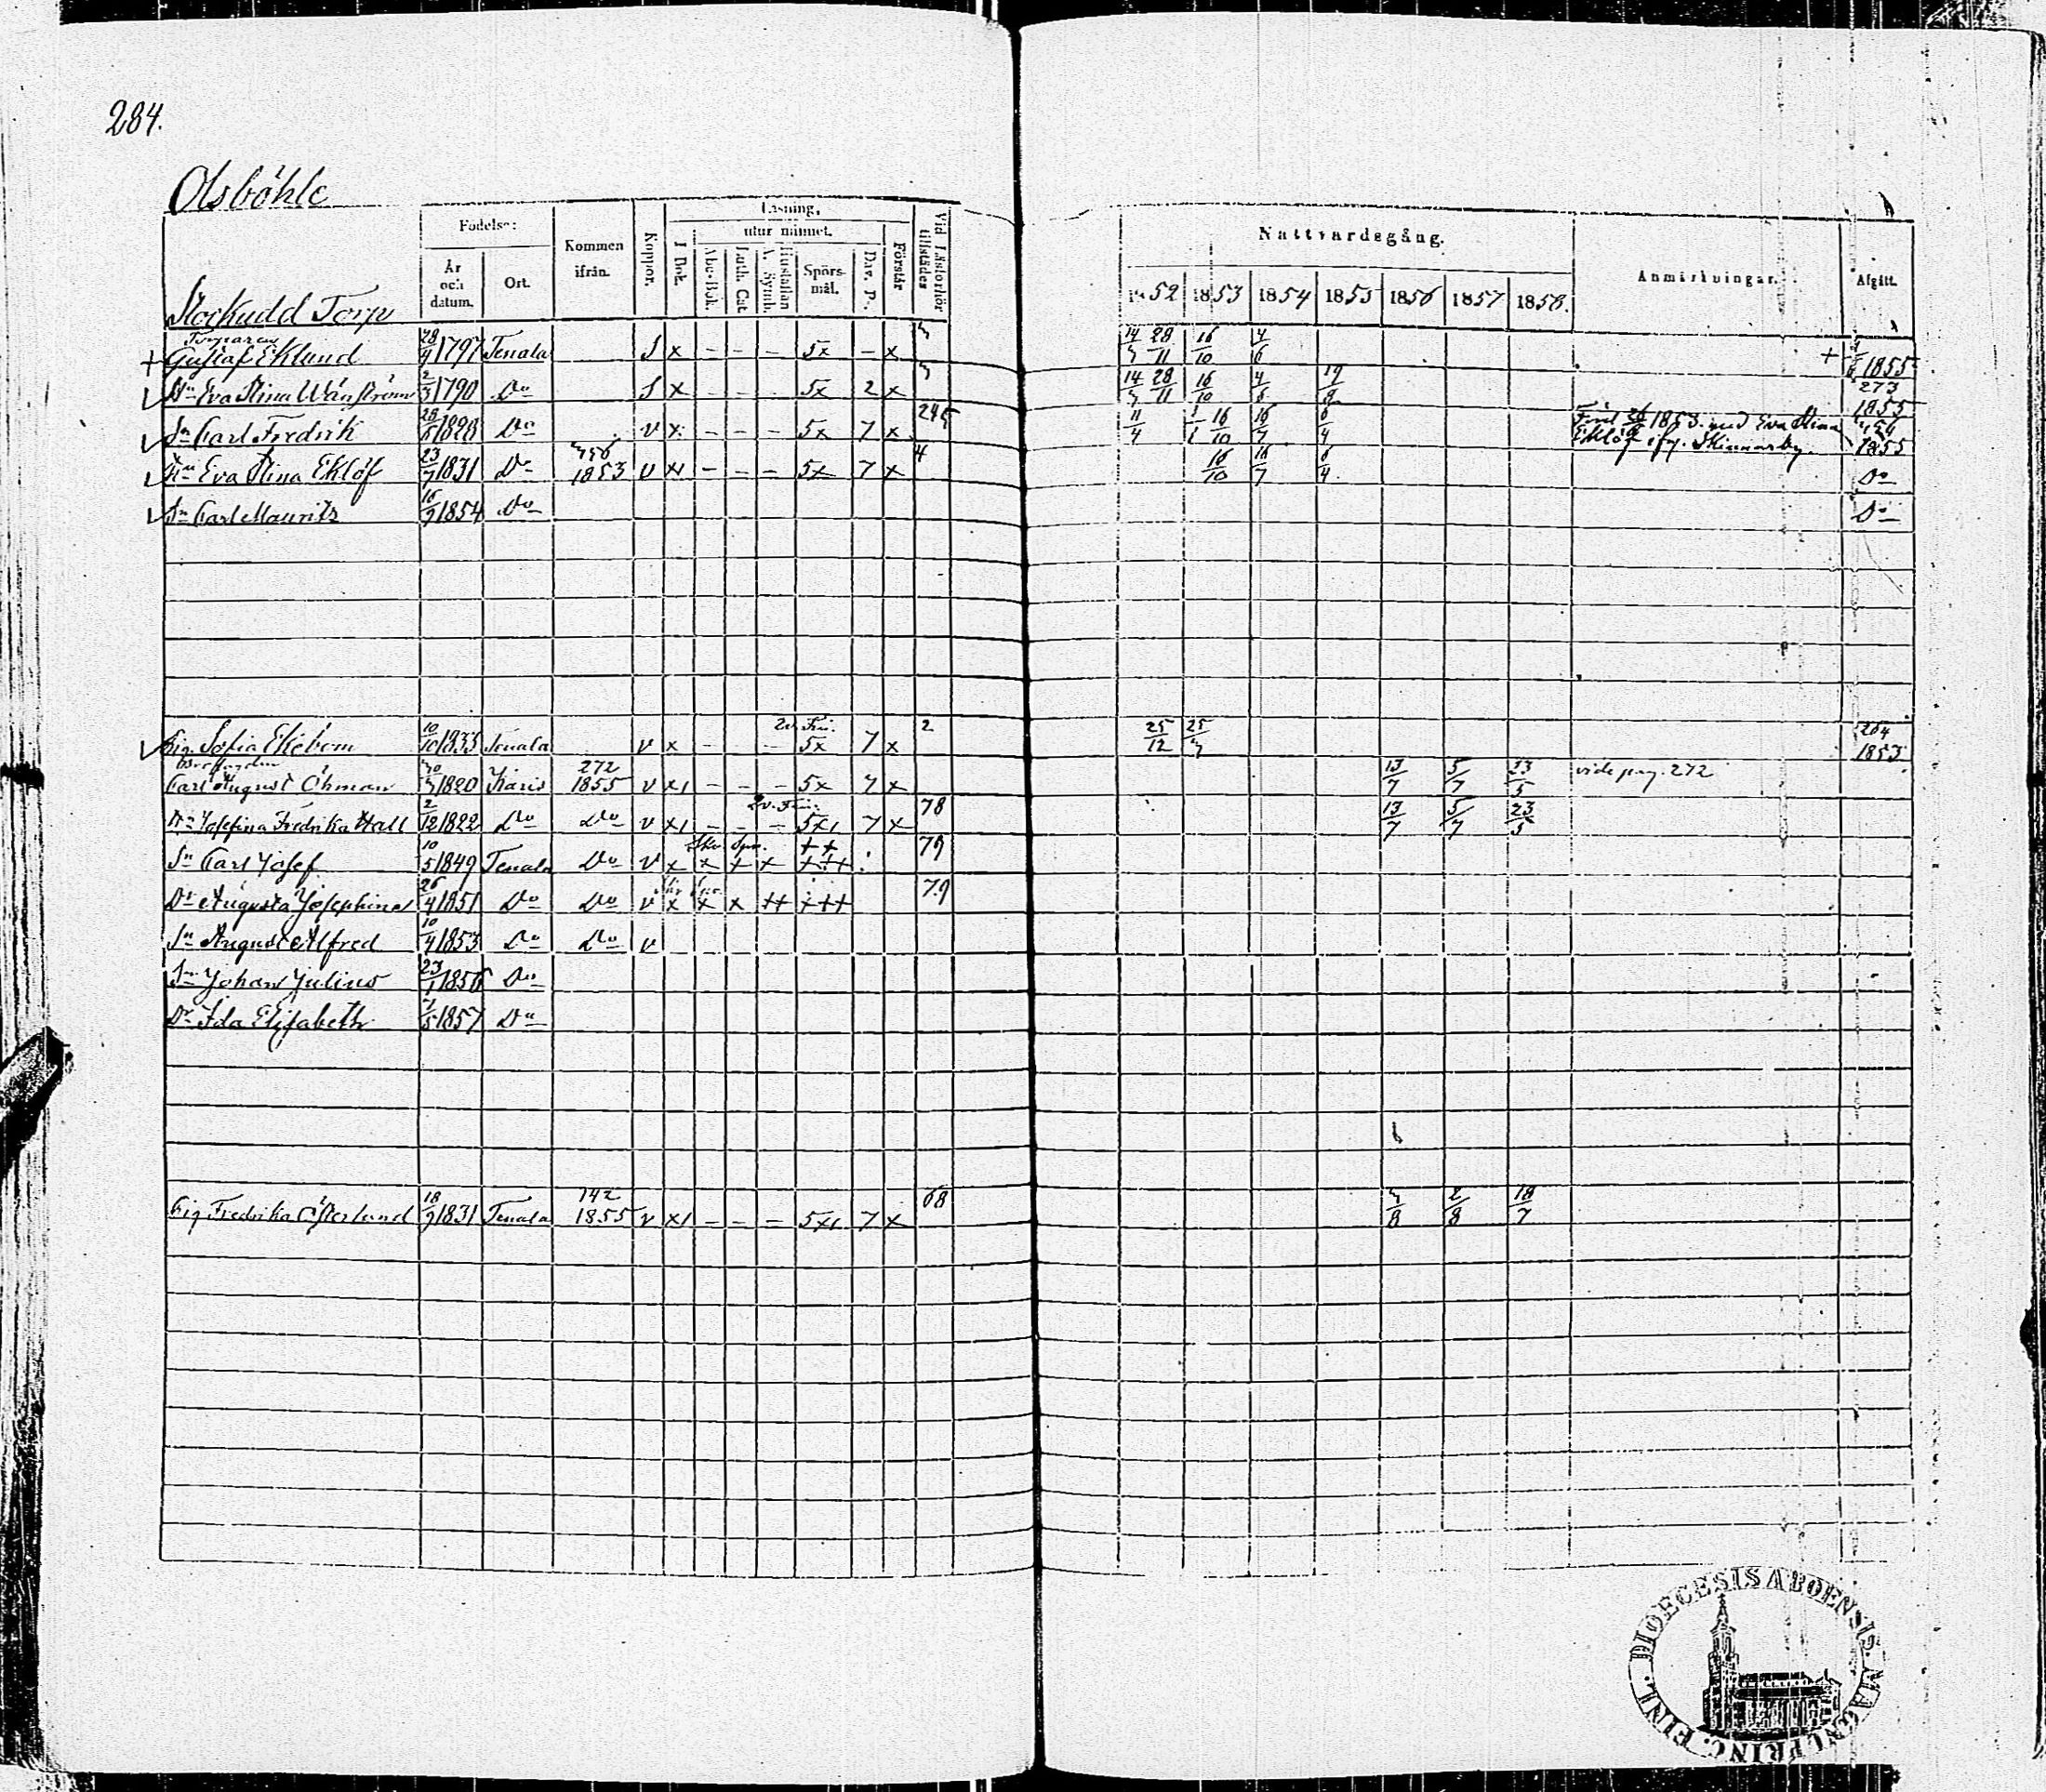 284.
Olsböhle
Födelse:
Kommen ifrån.
Koppor.
Läsning,
utur minnet.
Förstår
Vid Läsförhör tillstädes
År och datum.
Ort.
I Bok.
Abc-Bok.
Luth. Cat
Hustaflan A. Symb.
Spörs-mål.
Dav. Ps.
Nattvardsgång.
Anmärkningar.
Afgått.
1852 1853 1854 1855 1856 1857 1858.
Stockudd Torp
Torparen
+ Gustaf Eklund 28/4 1797 Tenala S x – – – 5x – x 14/3 28/11 16/10 4/6 + 1855
Hu Eva Stina Wänström 2/3 1790 Do S x – – – 5x 2 x 14/3 28/11 16/10 4/6 19/8 273 1855
Sn Carl Fredrik 1828 Do v x – – – 5x 7 x 245 11/4 16/10 16/7 6/4 1853 med Eva Stina
Eklöf ifr. Skinnarby. 1855
Hu Eva Stina Eklöf 23/7 1831 Do 1853 v x – – – 5x 7 x 4 16/10 16/7 6/4 Do
Sn Carl Maurits 16/9 1854 Do Do
Pig. Sofia Ekebom 10/10 1833 Tenala v x – – 5x 7 x 2 25/12 25/3 264 1853
Carl August Öhman 30/3 1820 Karis 272 1855 v x – – – 5x 7 x 13/7 5/7 23/5 vide pag. 272
Hu Josefina Fredrika Hall 2/12 1822 Do Do v x – – – 5x 7 x 78 13/7 5/7 23/5
Sn Carl Josef 10/5 1849 Tenala Do v x x + x 79
Dr Augusta Josephina 26/4 1851 Do Do v x x x ++ +++ 79
Sn August Alfred 10/4 1853 Do Do v
Sn Johan Julius 23/1 1856 Do
Dr Ida Elisabeth 7/5 1857 Do
Pig Fredrika Österlund 18/9 1831 Tenala 142 1855 v x – – – 5x 7 x 68 3/8 2/8 18/7
DIOECESIS ABOENSIS. MAGNI PRINC. FINL.